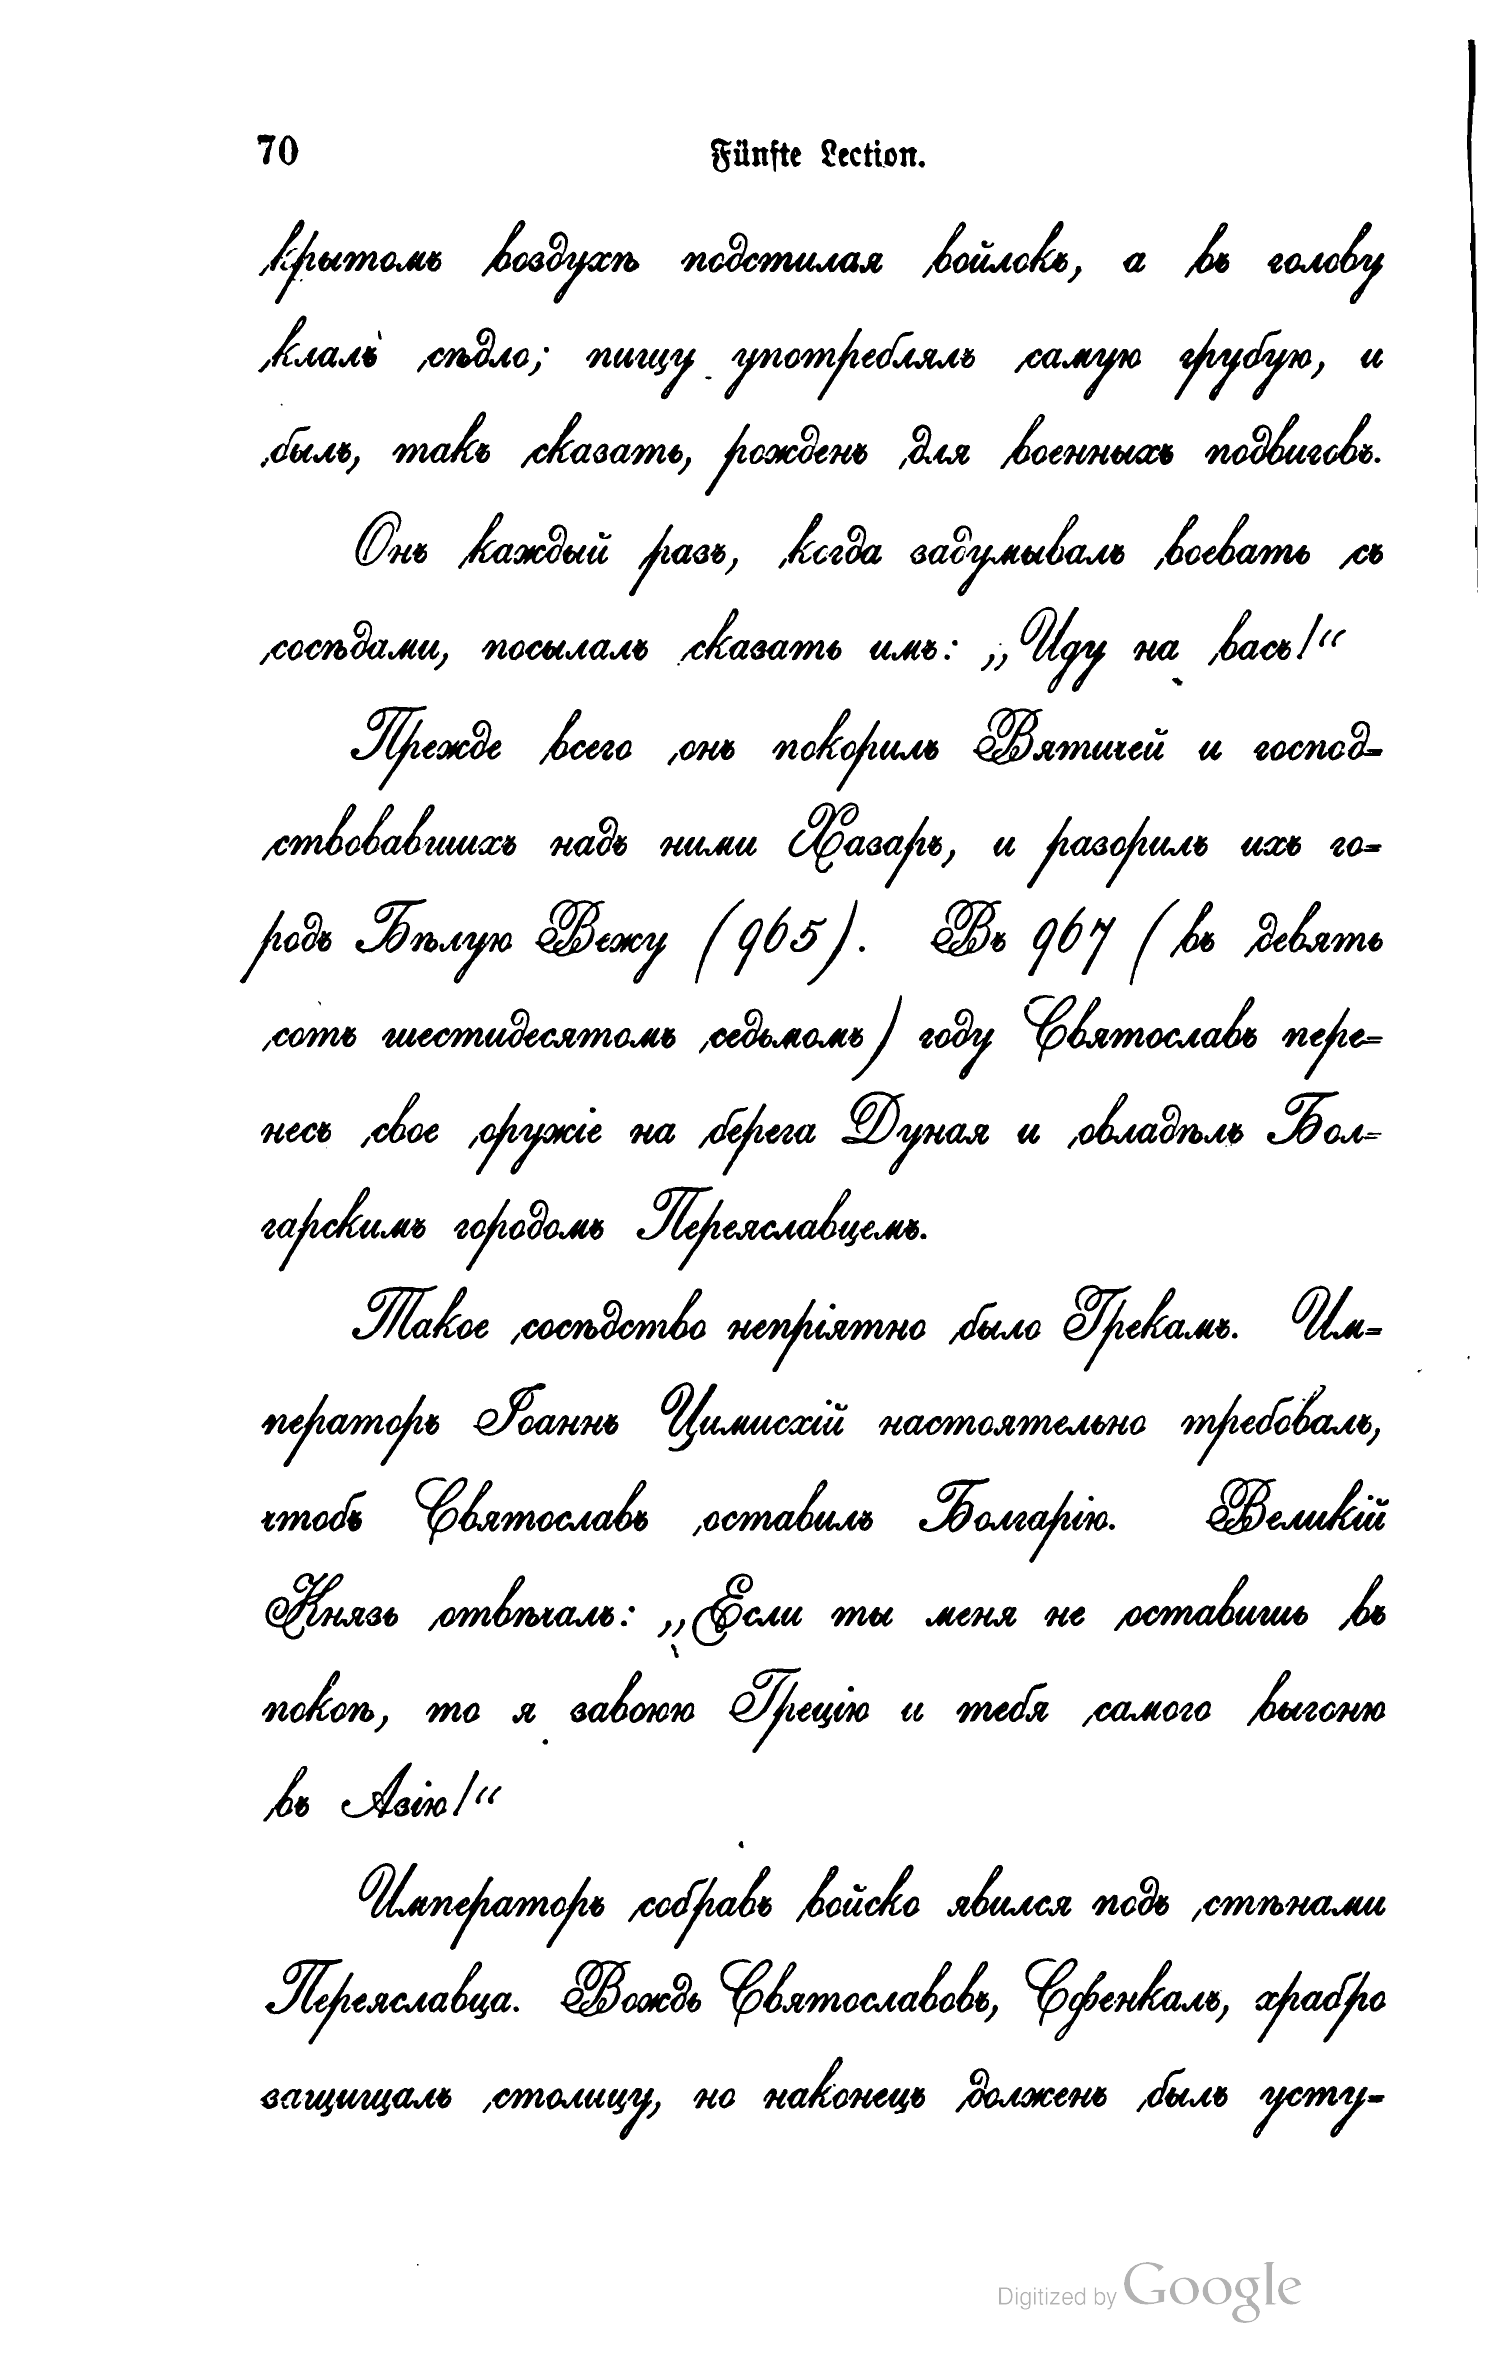 70 Fünfte Lection.
крытомъ воздухѣ подстилая войлокъ, а въ голову
клалъ сѣдло; пищу употреблялъ самую грубую, и
былъ, такъ сказать, рожденъ для военныхъ подвиговъ.
Онъ каждый разъ, когда задумывалъ воевать съ
сосѣдами, посылалъ сказать имъ: „Иду на васъ!“
Прежде всего онъ покорилъ Вятичей и господ=
ствовавшихъ надъ ними Хазаръ, и разорилъ ихъ го=
родъ Бѣлую Вежу (965). Въ 967 (въ девять
сотъ шестидесятомъ седьмомъ) году Святославъ пере=
несъ свое оружіе на берега Дуная и овладѣлъ Бол=
гарскимъ городомъ Переяславцемъ.
Такое сосѣдство непріятно было Грекамъ. Им=
ператоръ Іоаннъ Цимисхій настоятельно требовалъ,
чтобъ Святославъ оставилъ Болгарію. Великій
Князь отвѣчалъ: „Если ты меня не оставишь въ
покоѣ, то я завоюю Грецію и тебя самого выгоню
въ Азію!“
Императоръ собравъ войско явился подъ стѣнами
Переяславца. Вождь Святославовъ, Сфенкалъ, храбро
защищалъ столицу, но наконецъ долженъ былъ усту=
Digitized by Google